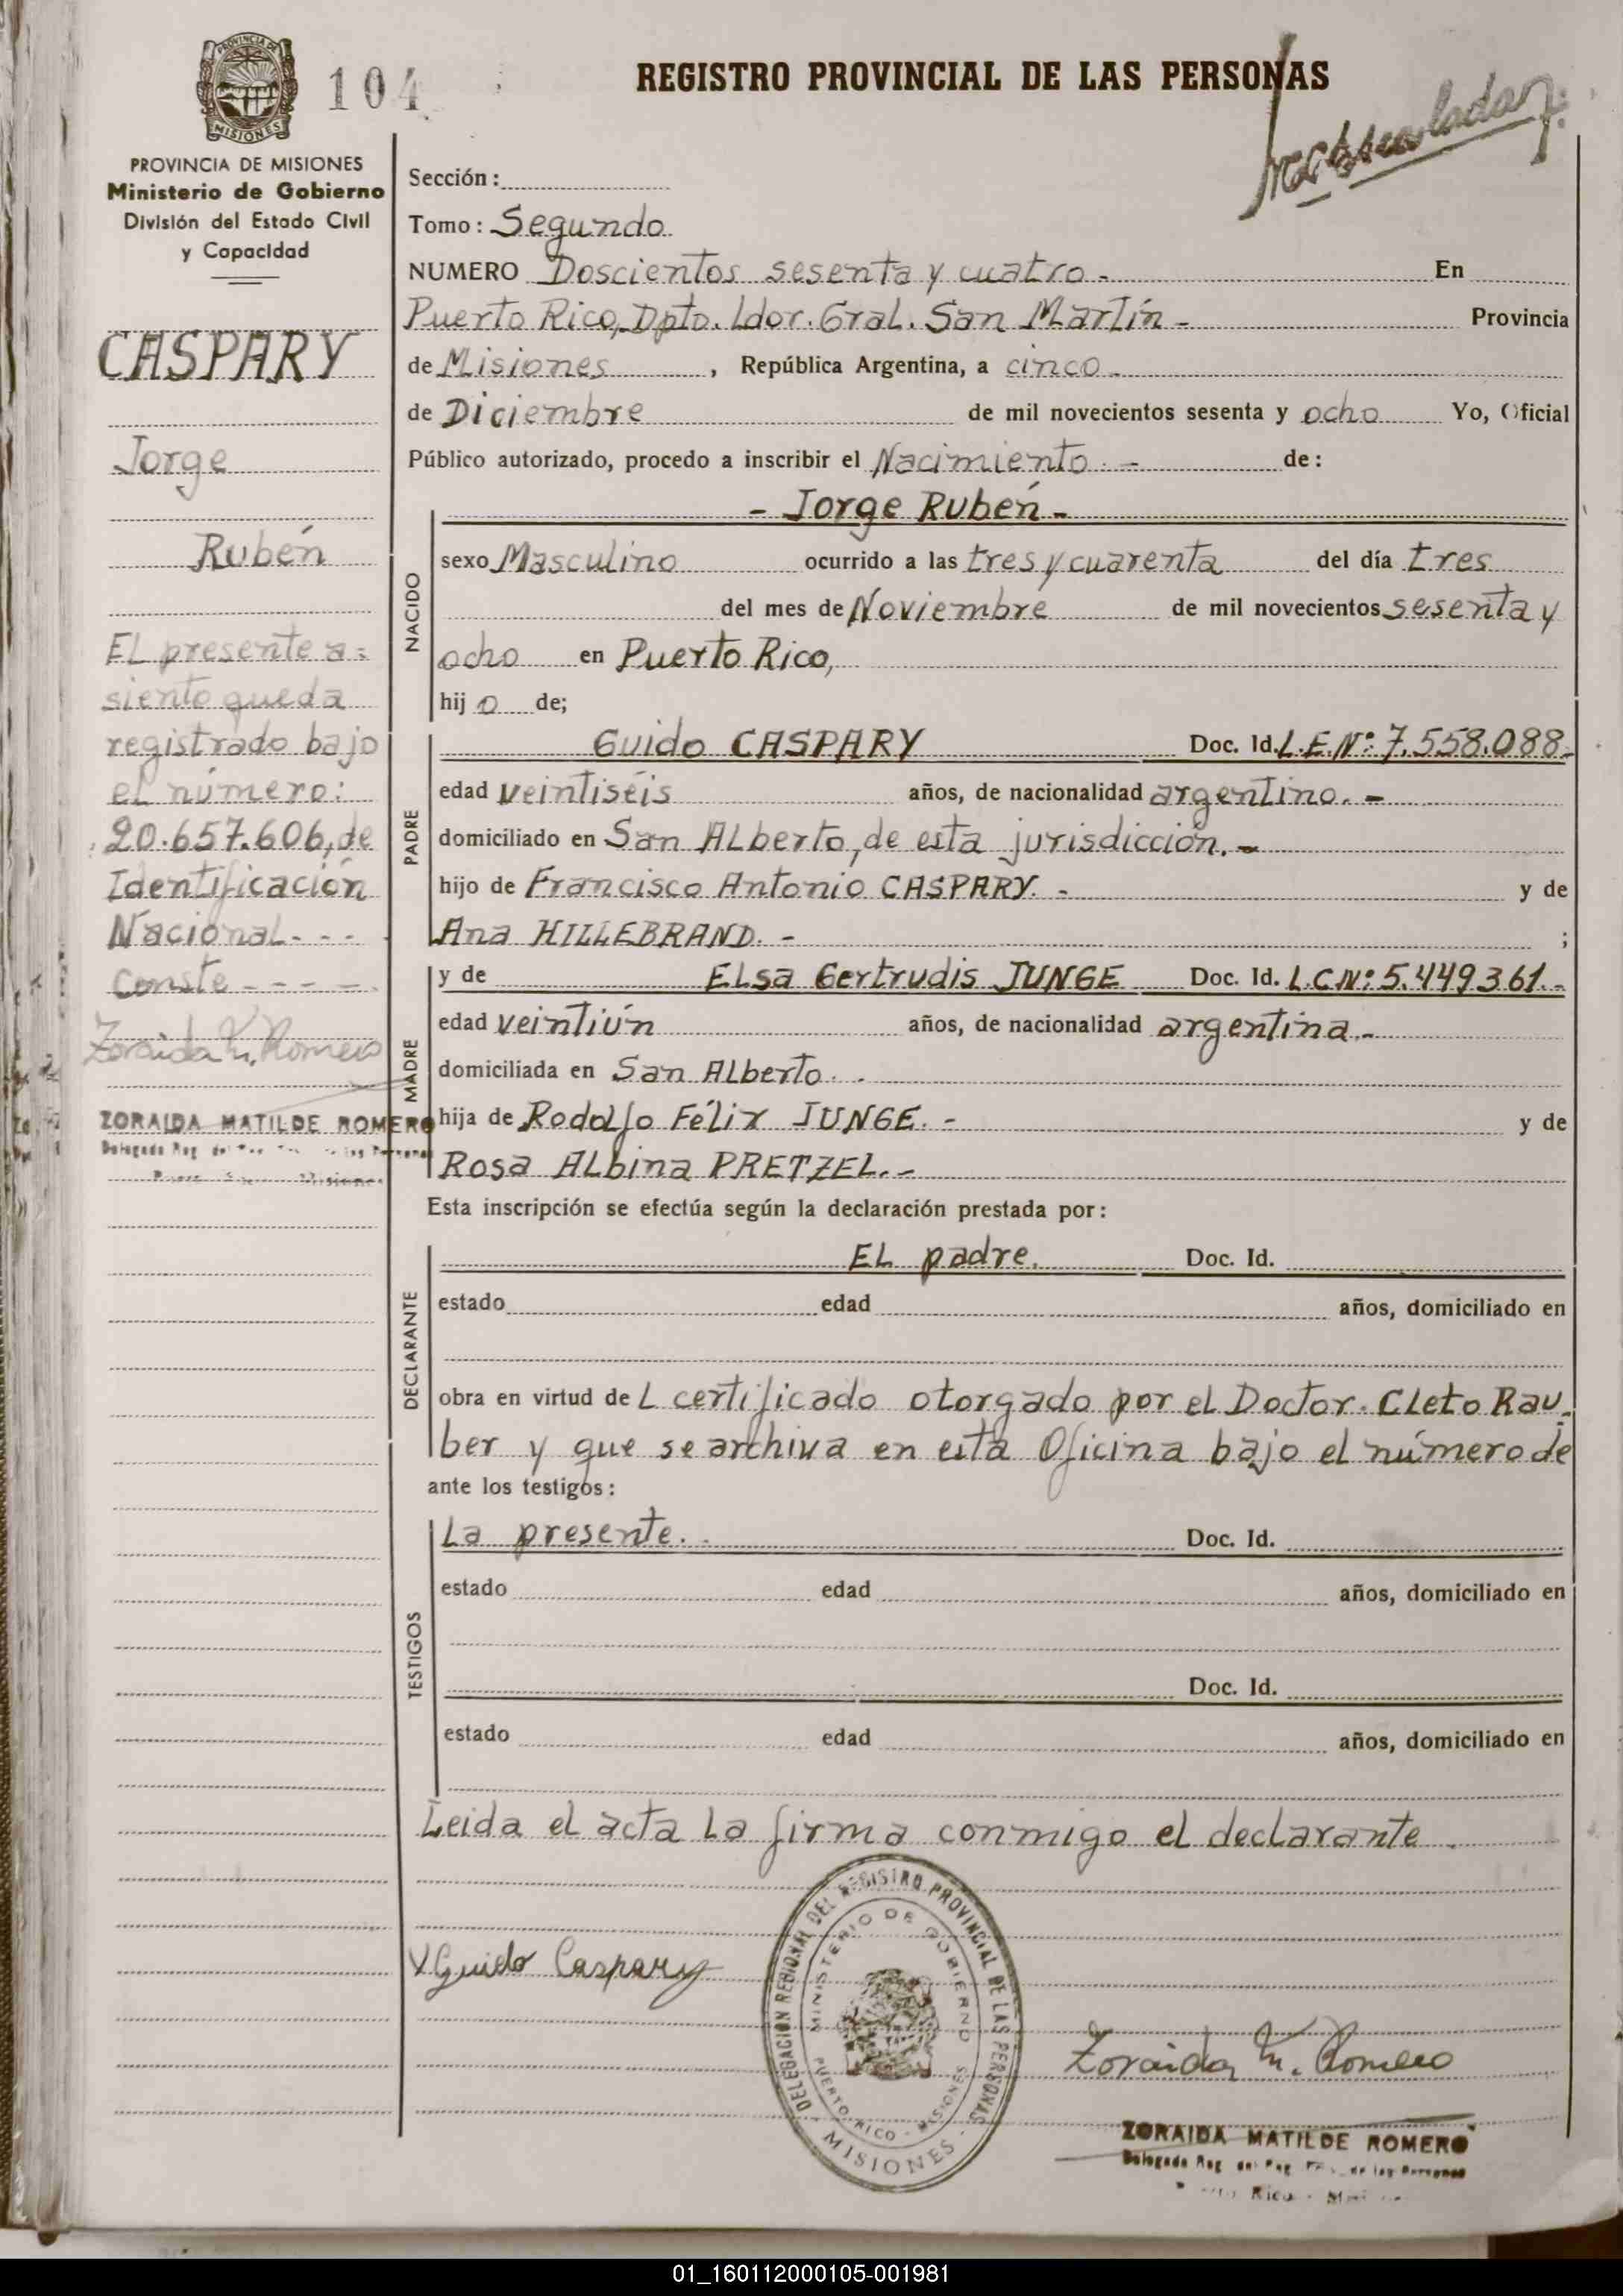 104
REGISTRO PROVINCIAL DE LAS PERSONAS
PROVINCIA DE MISIONES
Ministerio de Gobierno
División del Estado Civil
y Capacidad
CASPARY
Jorge
Rubén
El presente a=
siento queda
registrado bajo
el número:
20.657.606, de
Identificación
Nacional - - -
Conste - - - -
Zoraida M. Romero
ZORAIDA MATILDE ROMERO
Sección:
Tomo: Segundo
NUMERO Doscientos sesenta y cuatro.- En
Puerto Rico, Dpto. Ldor. Gral. San Martín - Provincia
de Misiones, República Argentina, a cinco -
de Diciembre de mil novecientos sesenta y ocho Yo, Oficial
Público autorizado, procedo a inscribir el Nacimiento.- de:
- Jorge Rubén -
NACIDO
sexo Masculino ocurrido a las tres y cuarenta del día tres
del mes de Noviembre de mil novecientos sesenta y
ocho en Puerto Rico,
hij o de;
PADRE
Guido CASPARY Doc. Id. L.E.Nº: 7.558.088-
edad veintiséis años, de nacionalidad argentino.-
domiciliado en San Alberto, de esta jurisdicción.-
hijo de Francisco Antonio CASPARY.- y de
Ana HILLEBRAND.- ;
MADRE
y de Elsa Gertrudis JUNGE Doc. Id. L.C.Nº: 5.449361.-
edad veintiún años, de nacionalidad argentina.-
domiciliada en San Alberto..
hija de Rodolfo Félix JUNGE.- y de
Rosa Albina PRETZEL.-
Esta inscripción se efectúa según la declaración prestada por:
DECLARANTE
El padre. Doc. Id.
estado edad años, domiciliado en
obra en virtud de l certificado otorgado por el Doctor. Cleto Rau-
ber y que se archiva en esta Oficina bajo el número de
ante los testigos:
TESTIGOS
La presente.. Doc. Id.
estado edad años, domiciliado en
Doc. Id.
estado edad años, domiciliado en
Leida el acta la firma conmigo el declarante.
Guido Caspary
DELEGACION REGIONAL DEL REGISTRO PROVINCIAL DE LAS PERSONAS
MINISTERIO DE GOBIERNO
PUERTO RICO - MISIONES
MISIONES
Zoraida M. Romero
ZORAIDA MATILDE ROMERO
01_160112000105-001981